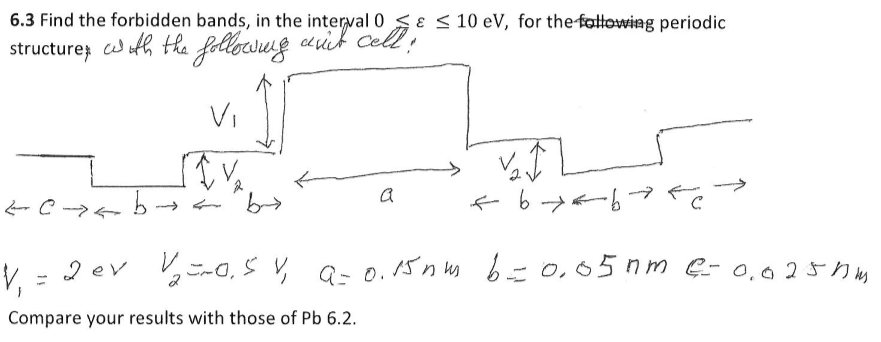 6.3 Find the forbidden bands, in the interval 0 ≤ ε ≤ 10 eV, for the following periodic
structure, with the following unit cell:
V₁
V₂
V₂
← c → ← b → ← b → a ← b → ← b → ← c →
V₁ = 2 eV V₂ = -0.5 V₁ a = 0.15 nm b = 0.05 nm c = 0.025 nm
Compare your results with those of Pb 6.2.